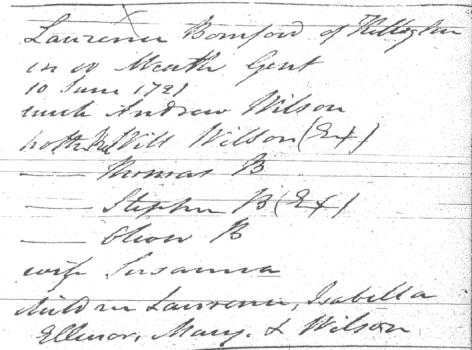 Laurence Bomford of Killeghan
in co Meath Gent
10 June 1721
uncle Andrew Wilson
Will Wilson (Ex)
—— Thomas B
—— Stephen B (Ex)
—— Oliver B
wife Susanna
children Laurence, Isabella
Ellinor, Mary, & Wilson